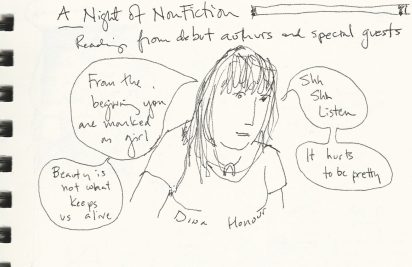 A Night of NonFiction
Reading from debut authors and special guests
From the
begining you
are marked
as girl
Beauty is
not what
keeps
us alive
Shh
Shh
Listen
It hurts
to be pretty
Dina Honour